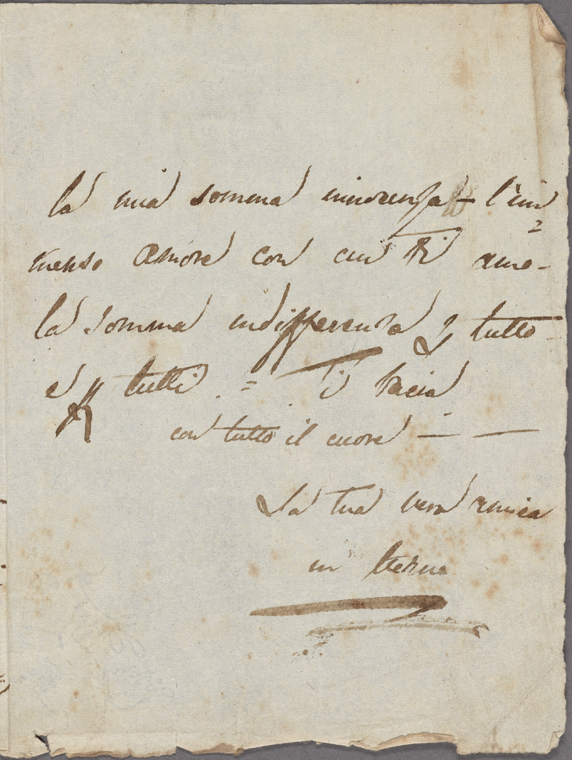 la mia somma innocenza – l'im=
menso amore con cui ti amo –
la somma indifferenza p tutto
e p tutti . = Ti bacia
con tutto il cuore — —
La tua vera amica
in eterno